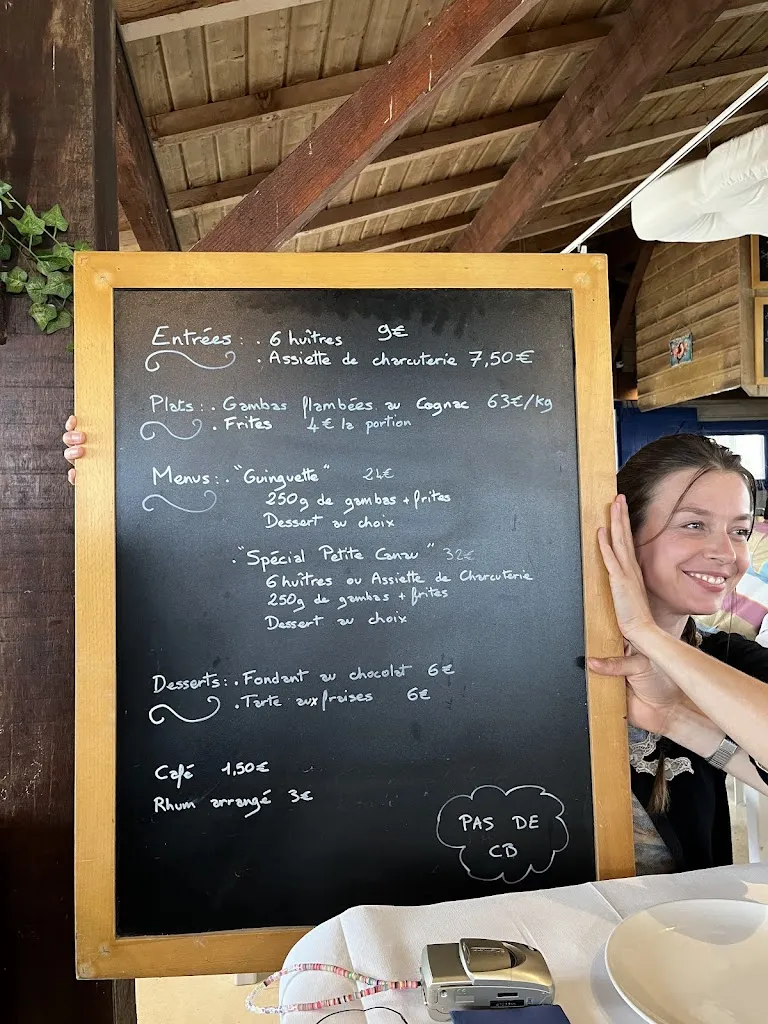 Entrées : . 6 huîtres 9€
. Assiette de charcuterie 7,50€
Plats : . Gambas flambées au Cognac 63€/kg
. Frites 4€ la portion
Menus : . "Guinguette" 24€
250g de gambas + frites
Dessert au choix
. "Spécial Petite Canau" 32€
6 huîtres ou Assiette de Charcuterie
250g de gambas + frites
Dessert au choix
Desserts : . Fondant au chocolat 6€
. Tarte aux fraises 6€
Café 1,50€
Rhum arrangé 3€
PAS DE
CB